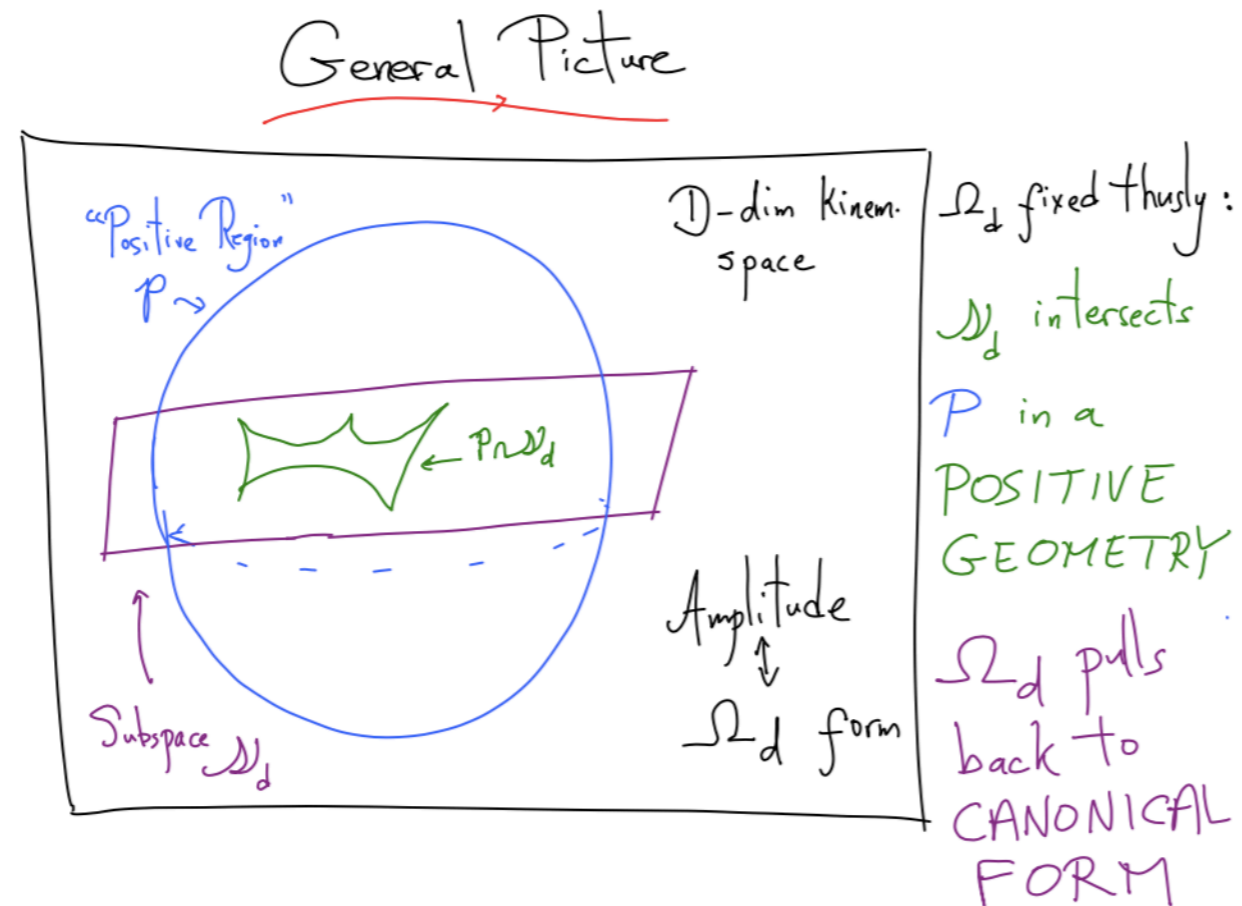 General Picture
"Positive Region"
P
D-dim Kinem.
space
P∩𝒩d
Amplitude
↕
Ωd form
Subspace 𝒩d
Ωd fixed thusly:
𝒩d intersects
P in a
POSITIVE
GEOMETRY
Ωd pulls
back to
CANONICAL
FORM